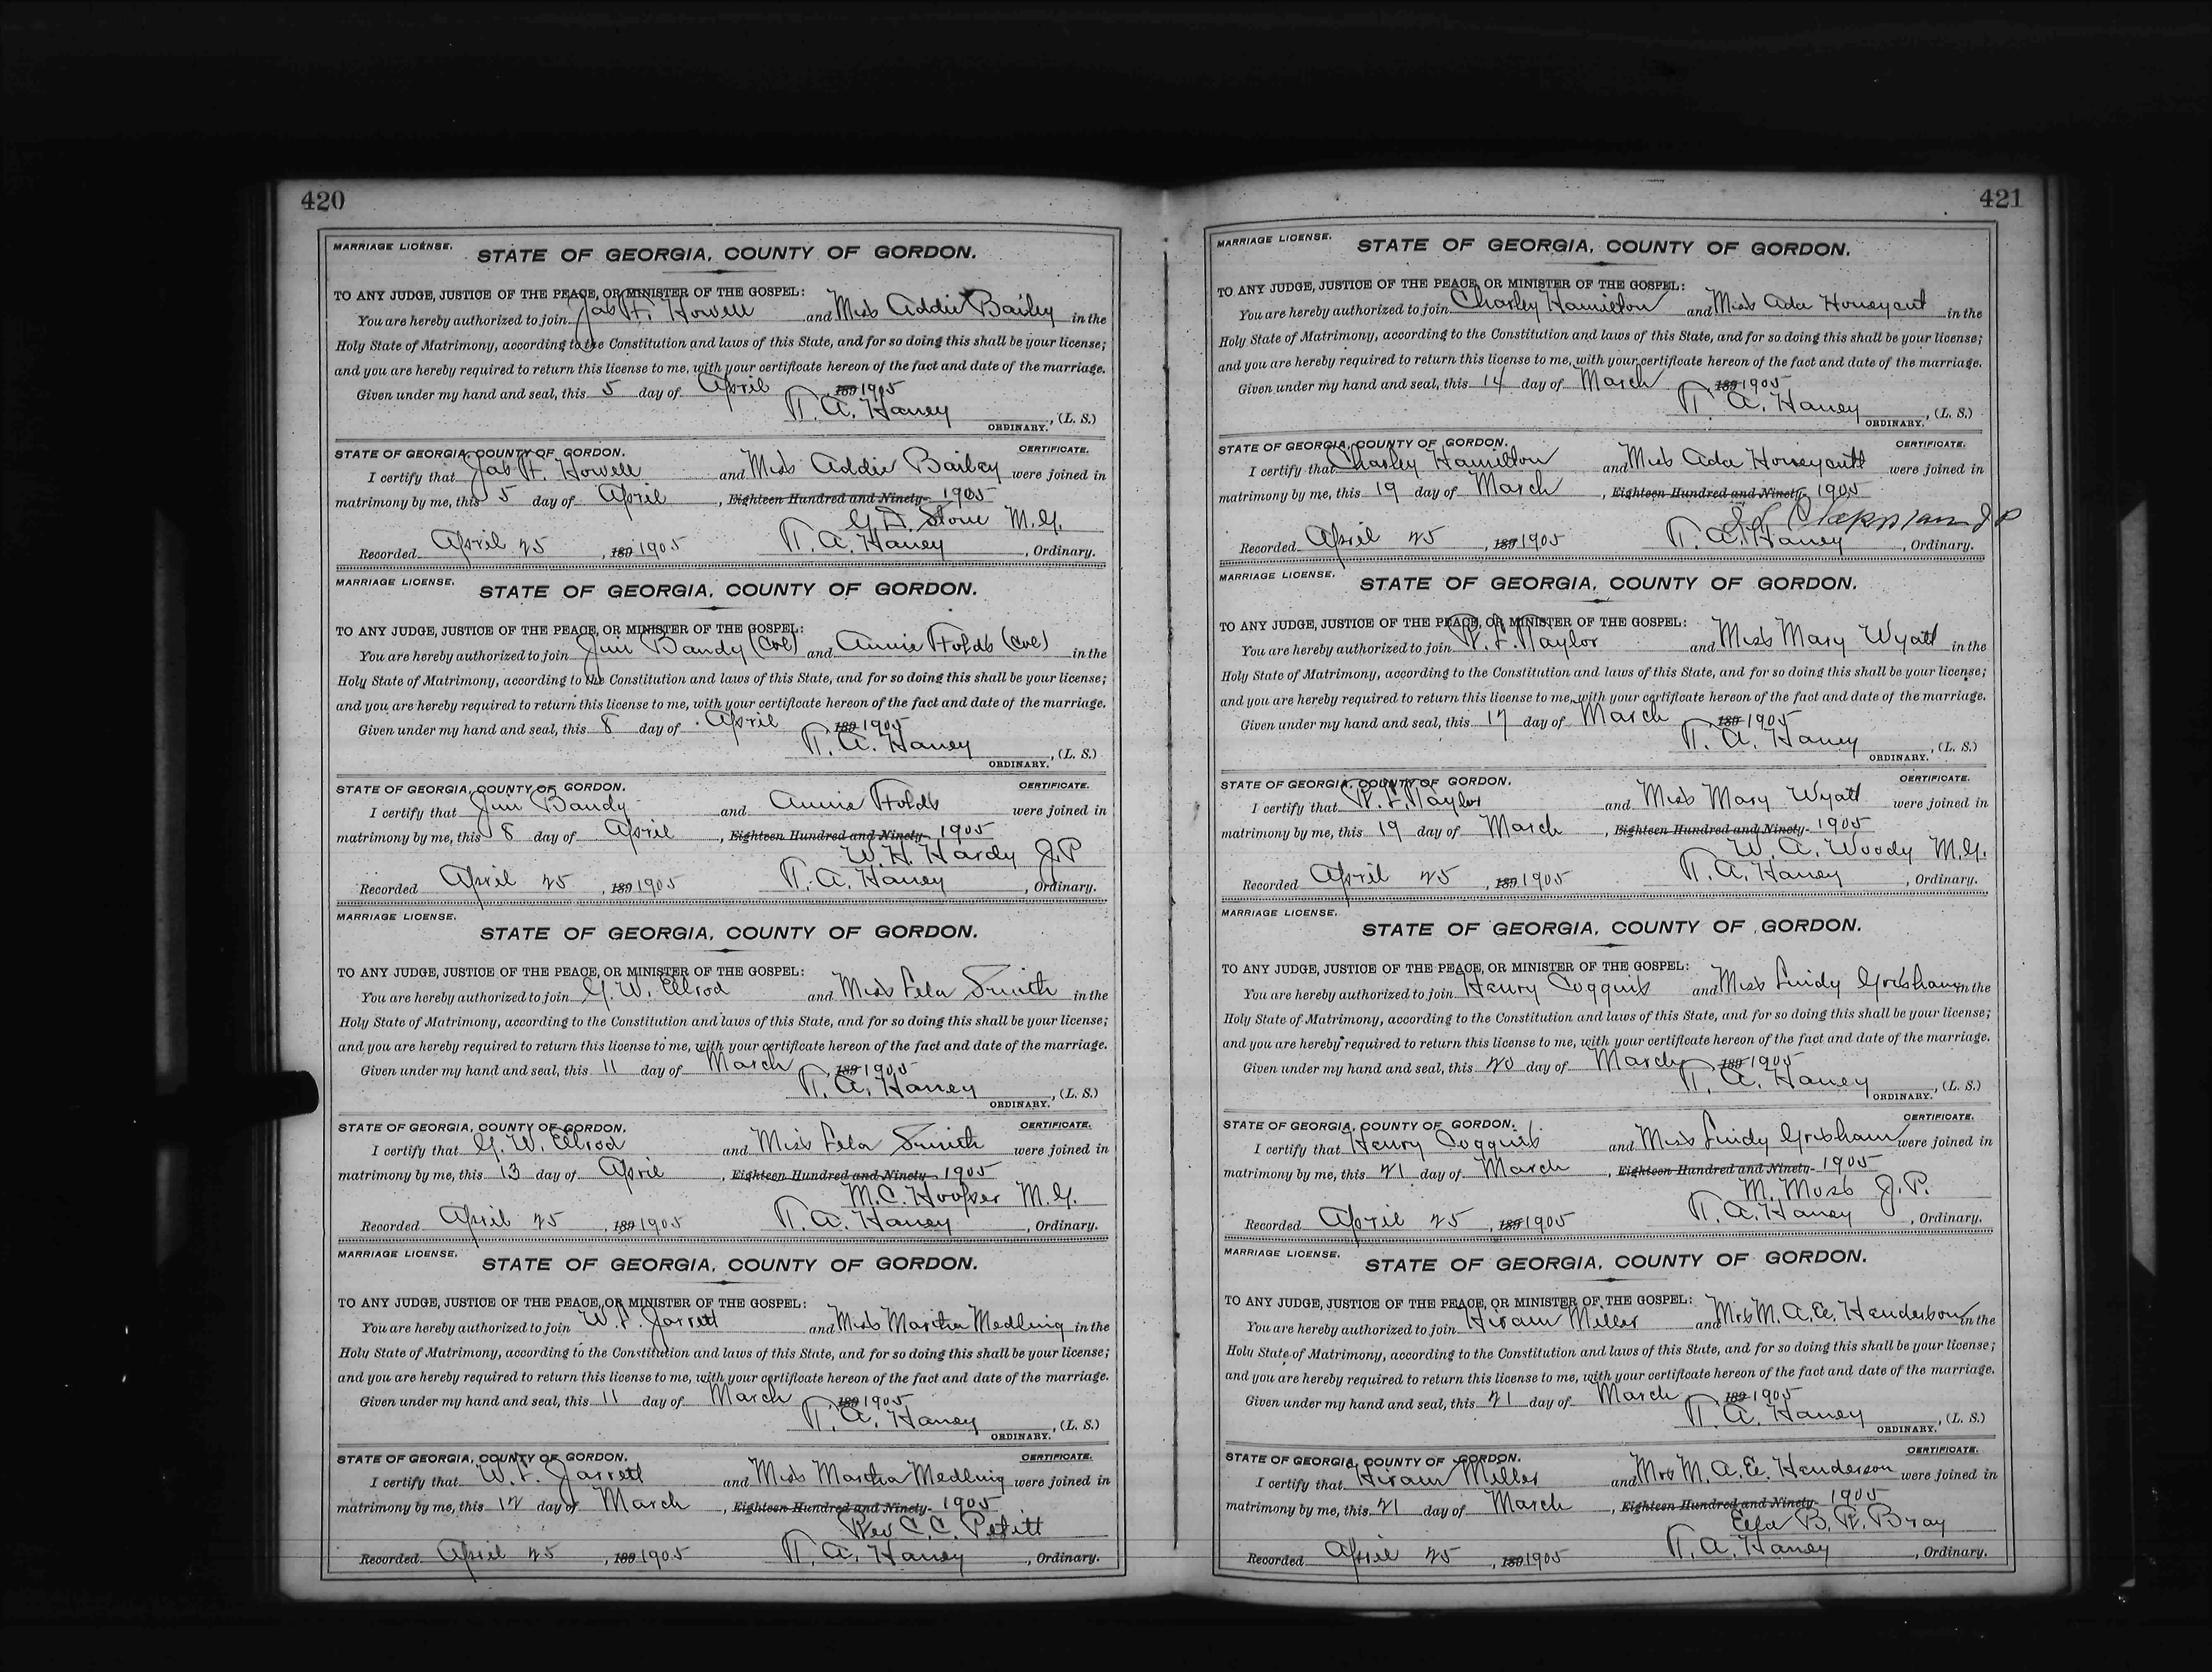 420
MARRIAGE LICENSE.
STATE OF GEORGIA, COUNTY OF GORDON.
TO ANY JUDGE, JUSTICE OF THE PEACE, OR MINISTER OF THE GOSPEL:
You are hereby authorized to join Jas H. Howell and Miss Addie Bailey in the
Holy State of Matrimony, according to the Constitution and laws of this State, and for so doing this shall be your license;
and you are hereby required to return this license to me, with your certificate hereon of the fact and date of the marriage.
Given under my hand and seal, this 5 day of April, 189 1905
T. A. Haney, (L. S.)
ORDINARY.
STATE OF GEORGIA, COUNTY OF GORDON. CERTIFICATE.
I certify that Jas H. Howell and Miss Addie Bailey were joined in
matrimony by me, this 5 day of April, Eighteen Hundred and Ninety- 1905
G. D. Stone M.G.
Recorded April 25, 189 1905 T. A. Haney, Ordinary.
MARRIAGE LICENSE.
STATE OF GEORGIA, COUNTY OF GORDON.
TO ANY JUDGE, JUSTICE OF THE PEACE, OR MINISTER OF THE GOSPEL:
You are hereby authorized to join Jim Bandy (Col) and Annie Folds (Col) in the
Holy State of Matrimony, according to the Constitution and laws of this State, and for so doing this shall be your license;
and you are hereby required to return this license to me, with your certificate hereon of the fact and date of the marriage.
Given under my hand and seal, this 8 day of April 189 1905
T. A. Haney, (L. S.)
ORDINARY.
STATE OF GEORGIA, COUNTY OF GORDON. CERTIFICATE.
I certify that Jim Bandy and Annie Folds were joined in
matrimony by me, this 8 day of April, Eighteen Hundred and Ninety- 1905
W. H. Hardy J.P
Recorded April 25, 189 1905 T. A. Haney, Ordinary.
MARRIAGE LICENSE.
STATE OF GEORGIA, COUNTY OF GORDON.
TO ANY JUDGE, JUSTICE OF THE PEACE, OR MINISTER OF THE GOSPEL:
You are hereby authorized to join G. W. Ellrod and Miss Lela Smith in the
Holy State of Matrimony, according to the Constitution and laws of this State, and for so doing this shall be your license;
and you are hereby required to return this license to me, with your certificate hereon of the fact and date of the marriage.
Given under my hand and seal, this 11 day of March, 189 1905
T. A. Haney, (L. S.)
ORDINARY.
STATE OF GEORGIA, COUNTY OF GORDON. CERTIFICATE.
I certify that G. W. Ellrod and Miss Lela Smith were joined in
matrimony by me, this 13 day of April, Eighteen Hundred and Ninety- 1905
M. C. Hooper M.G.
Recorded April 25, 189 1905 T. A. Haney, Ordinary.
MARRIAGE LICENSE.
STATE OF GEORGIA, COUNTY OF GORDON.
TO ANY JUDGE, JUSTICE OF THE PEACE, OR MINISTER OF THE GOSPEL:
You are hereby authorized to join W. L. Jarrett and Miss Martha Medling in the
Holy State of Matrimony, according to the Constitution and laws of this State, and for so doing this shall be your license;
and you are hereby required to return this license to me, with your certificate hereon of the fact and date of the marriage.
Given under my hand and seal, this 11 day of March 189 1905
T. A. Haney, (L. S.)
ORDINARY.
STATE OF GEORGIA, COUNTY OF GORDON. CERTIFICATE.
I certify that W. L. Jarrett and Miss Martha Medling were joined in
matrimony by me, this 12 day of March, Eighteen Hundred and Ninety- 1905
Rev C. C. Pettitt
Recorded April 25, 189 1905 T. A. Haney, Ordinary.
421
MARRIAGE LICENSE.
STATE OF GEORGIA, COUNTY OF GORDON.
TO ANY JUDGE, JUSTICE OF THE PEACE, OR MINISTER OF THE GOSPEL:
You are hereby authorized to join Charley Hamilton and Miss Ada Honeycut in the
Holy State of Matrimony, according to the Constitution and laws of this State, and for so doing this shall be your license;
and you are hereby required to return this license to me, with your certificate hereon of the fact and date of the marriage.
Given under my hand and seal, this 14 day of March, 189 1905
T. A. Haney, (L. S.)
ORDINARY.
STATE OF GEORGIA, COUNTY OF GORDON. CERTIFICATE.
I certify that Charley Hamilton and Miss Ada Honeycutt were joined in
matrimony by me, this 19 day of March, Eighteen Hundred and Ninety- 1905
JP
Recorded April 25, 189 1905 T. A. Haney, Ordinary.
MARRIAGE LICENSE.
STATE OF GEORGIA, COUNTY OF GORDON.
TO ANY JUDGE, JUSTICE OF THE PEACE, OR MINISTER OF THE GOSPEL:
You are hereby authorized to join Taylor and Miss Mary Wyatt in the
Holy State of Matrimony, according to the Constitution and laws of this State, and for so doing this shall be your license;
and you are hereby required to return this license to me, with your certificate hereon of the fact and date of the marriage.
Given under my hand and seal, this 17 day of March 189 1905
T. A. Haney, (L. S.)
ORDINARY.
STATE OF GEORGIA, COUNTY OF GORDON. CERTIFICATE.
I certify that Taylor and Miss Mary Wyatt were joined in
matrimony by me, this 19 day of March, Eighteen Hundred and Ninety- 1905
W. A. Woody M.G.
Recorded April 25, 189 1905 T. A. Haney, Ordinary.
MARRIAGE LICENSE.
STATE OF GEORGIA, COUNTY OF GORDON.
TO ANY JUDGE, JUSTICE OF THE PEACE, OR MINISTER OF THE GOSPEL:
You are hereby authorized to join Henry Cogquis and Miss Lindy Grisham in the
Holy State of Matrimony, according to the Constitution and laws of this State, and for so doing this shall be your license;
and you are hereby required to return this license to me, with your certificate hereon of the fact and date of the marriage.
Given under my hand and seal, this 20 day of March, 189 1905
T. A. Haney, (L. S.)
ORDINARY.
STATE OF GEORGIA, COUNTY OF GORDON. CERTIFICATE.
I certify that Henry Cogquis and Miss Lindy Grisham were joined in
matrimony by me, this 21 day of March, Eighteen Hundred and Ninety- 1905
M. Moss J.P.
Recorded April 25, 189 1905 T. A. Haney, Ordinary.
MARRIAGE LICENSE.
STATE OF GEORGIA, COUNTY OF GORDON.
TO ANY JUDGE, JUSTICE OF THE PEACE, OR MINISTER OF THE GOSPEL:
You are hereby authorized to join Hiram Miller and Mrs M. A. E. Henderson in the
Holy State of Matrimony, according to the Constitution and laws of this State, and for so doing this shall be your license;
and you are hereby required to return this license to me, with your certificate hereon of the fact and date of the marriage.
Given under my hand and seal, this 21 day of March, 189 1905
T. A. Haney, (L. S.)
ORDINARY.
STATE OF GEORGIA, COUNTY OF GORDON. CERTIFICATE.
I certify that Hiram Miller and Mrs M. A. E. Henderson were joined in
matrimony by me, this 21 day of March, Eighteen Hundred and Ninety- 1905
Bray
Recorded April 25, 189 1905 T. A. Haney, Ordinary.